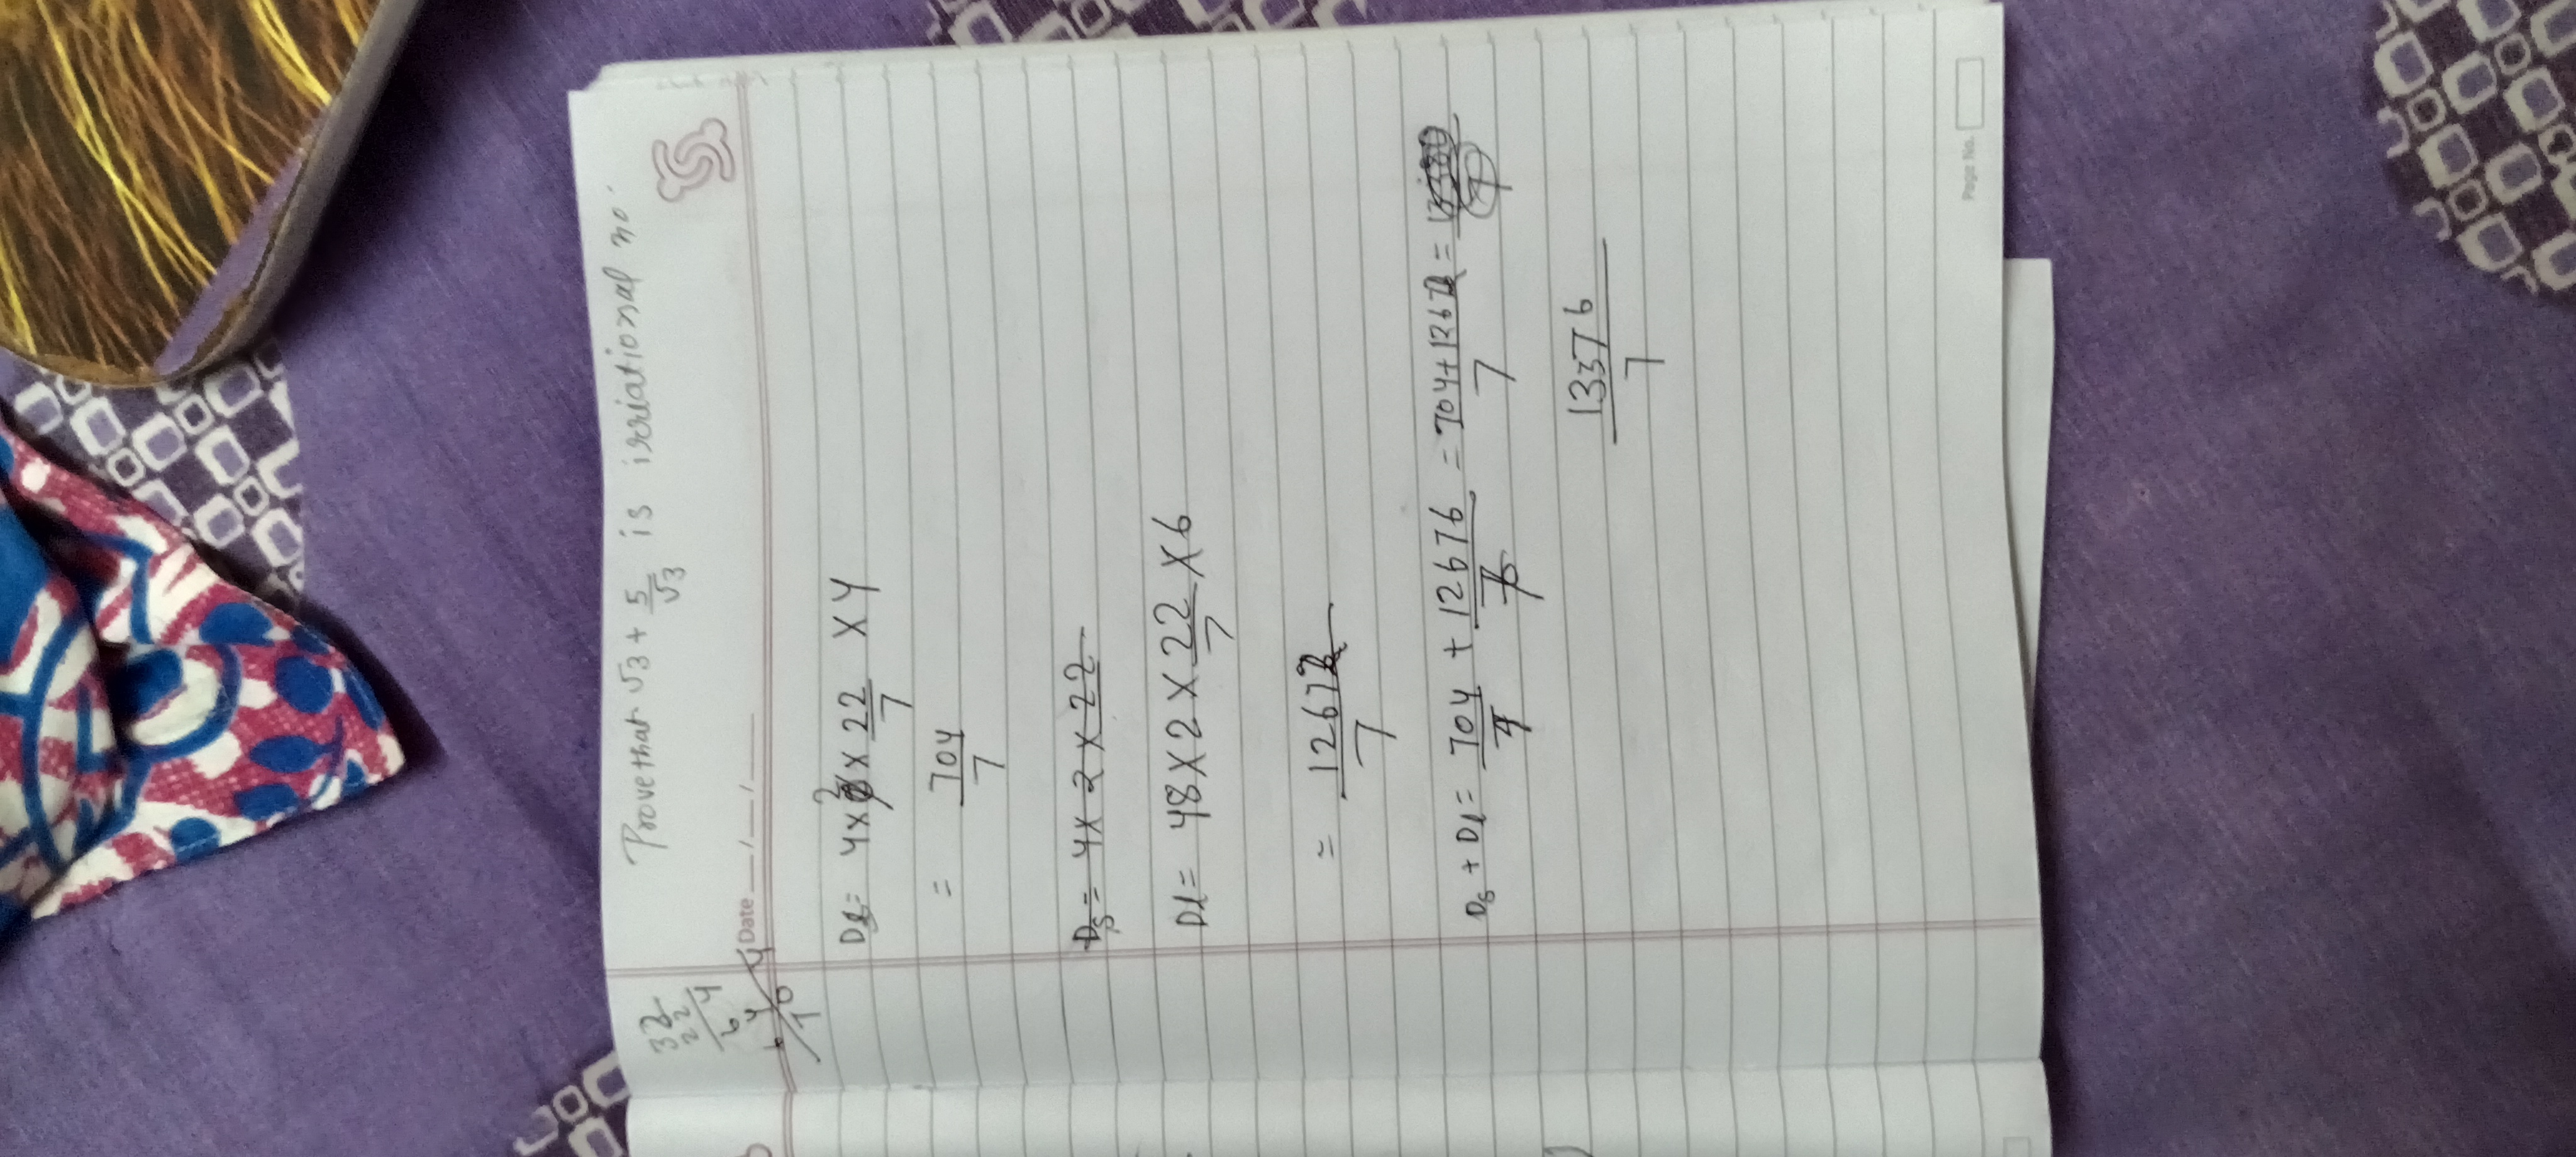 Prove that √3 + 5/√3 is irriational no.
32
22
64
64
70 4
Date __/__/__
Dl = 4×2×22/7 ×4
= 704/7
Ds = 4×2×22
Dl = 48×2×22/7×6
= 12672/7
Ds + Dl = 704/7 + 12676/7 = 704+12672/7 =
13376/7
Page No.